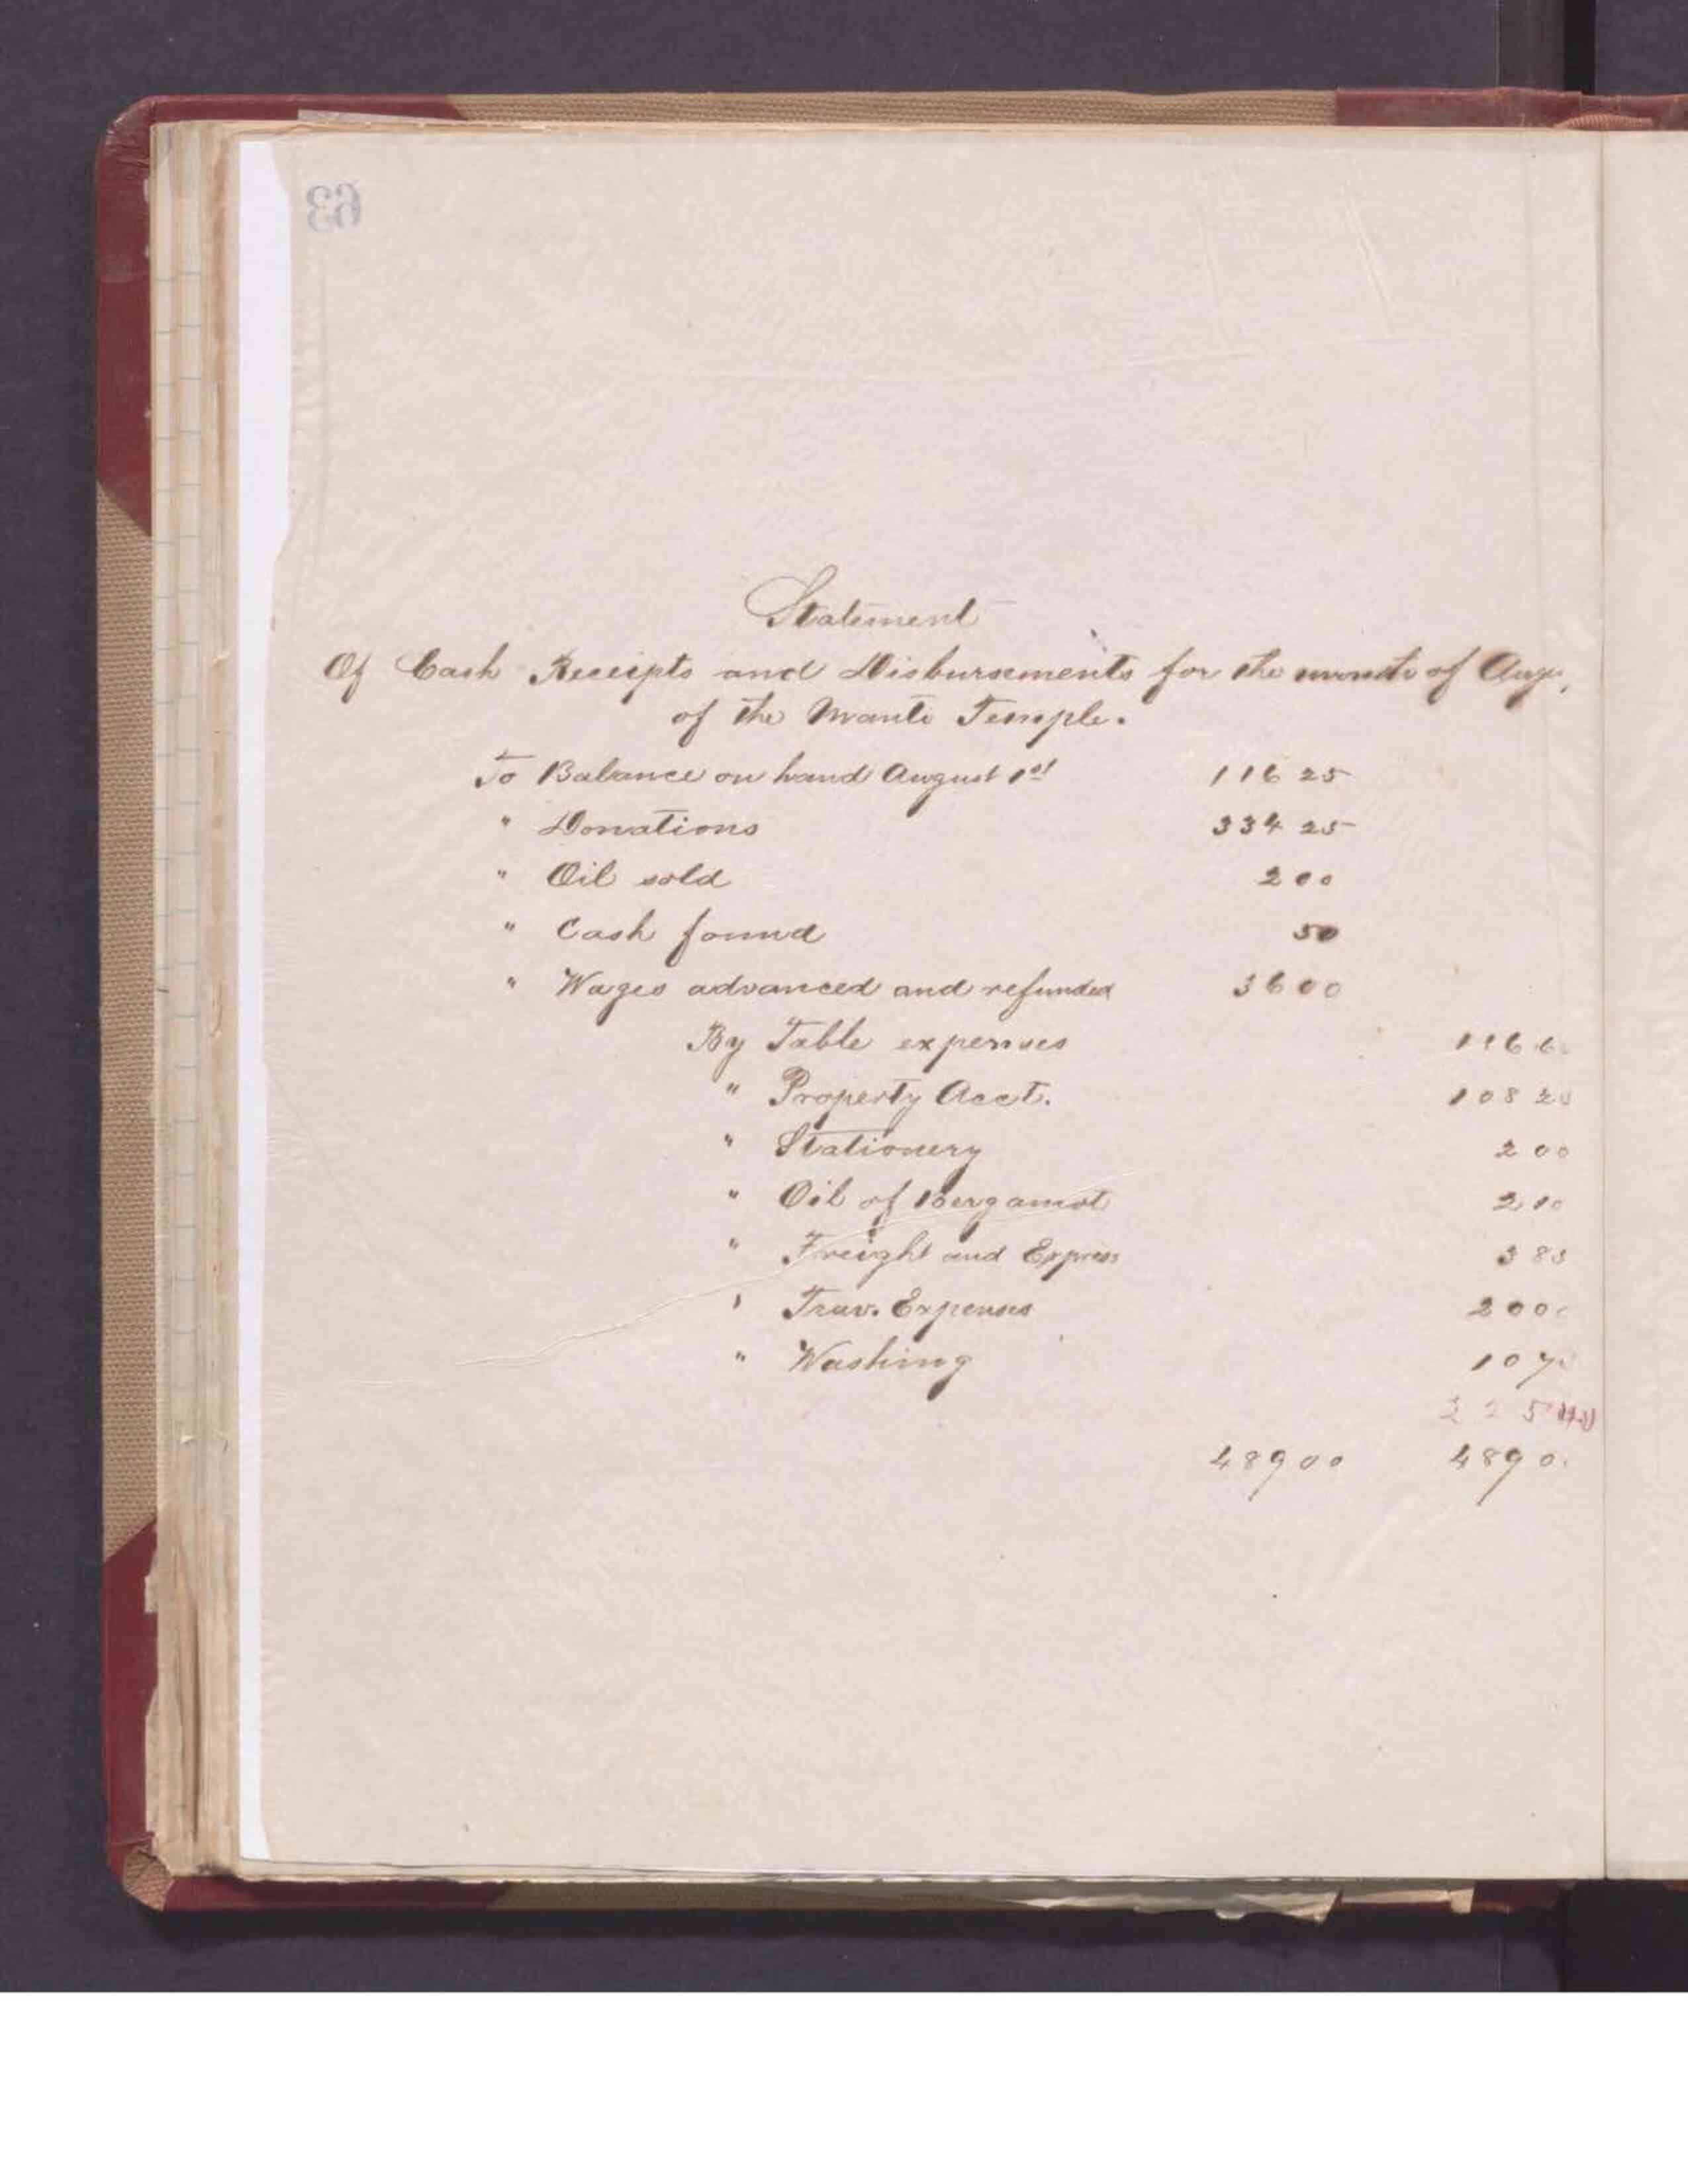 63
Statement
Of Cash Receipts and Disbursements for the month of Aug.,
of the Manti Temple.
To Balance on hand August 1st 116 25
" Donations 334 25
" Oil sold 2 00
" Cash found 50
" Wages advanced and refunded 36 00
By Table expenses 116 6
" Property Acct. 108 20
" Stationery 2 00
" Oil of Bergamot 2 10
" Freight and Express 3 8
" Trav. Expenses 20 00
" Washing 10 70
225
489 00 489 0